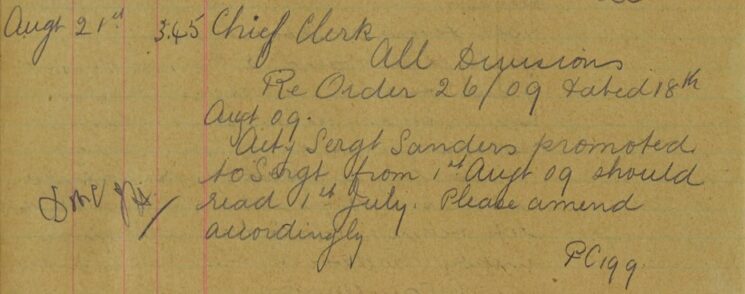 Augt 21st 3.45 Chief Clerk
All Divisions
Re Order 26/09 dated 18th
Augt 09.
Actg Sergt Sanders promoted
to Sergt from 1st Augt 09 should
read 1st July. Please amend
accordingly
PC199